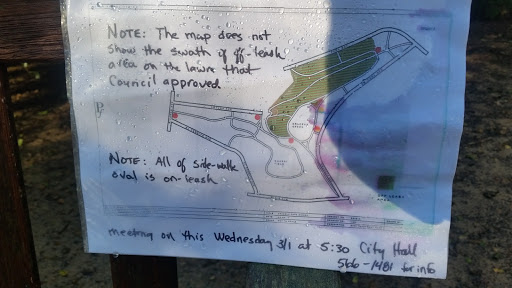 NOTE: The map does not
show the swath of off-leash
area on the lawn that
Council approved
NOTE: All of side-walk
oval is on-leash
meeting on this Wednesday 3/1 at 5:30 City Hall
566-1481 for info